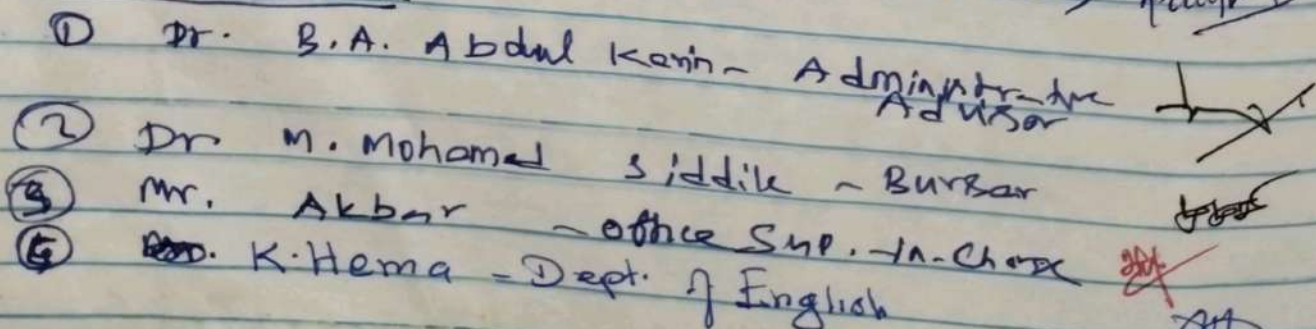 ① Dr. B.A. Abdul Karim - Administrative
Advisor
② Dr M. Mohamed Siddik - Bursar
③ Mr. Akbar - office Sup. In-Charge
K. Hema - Dept. of English